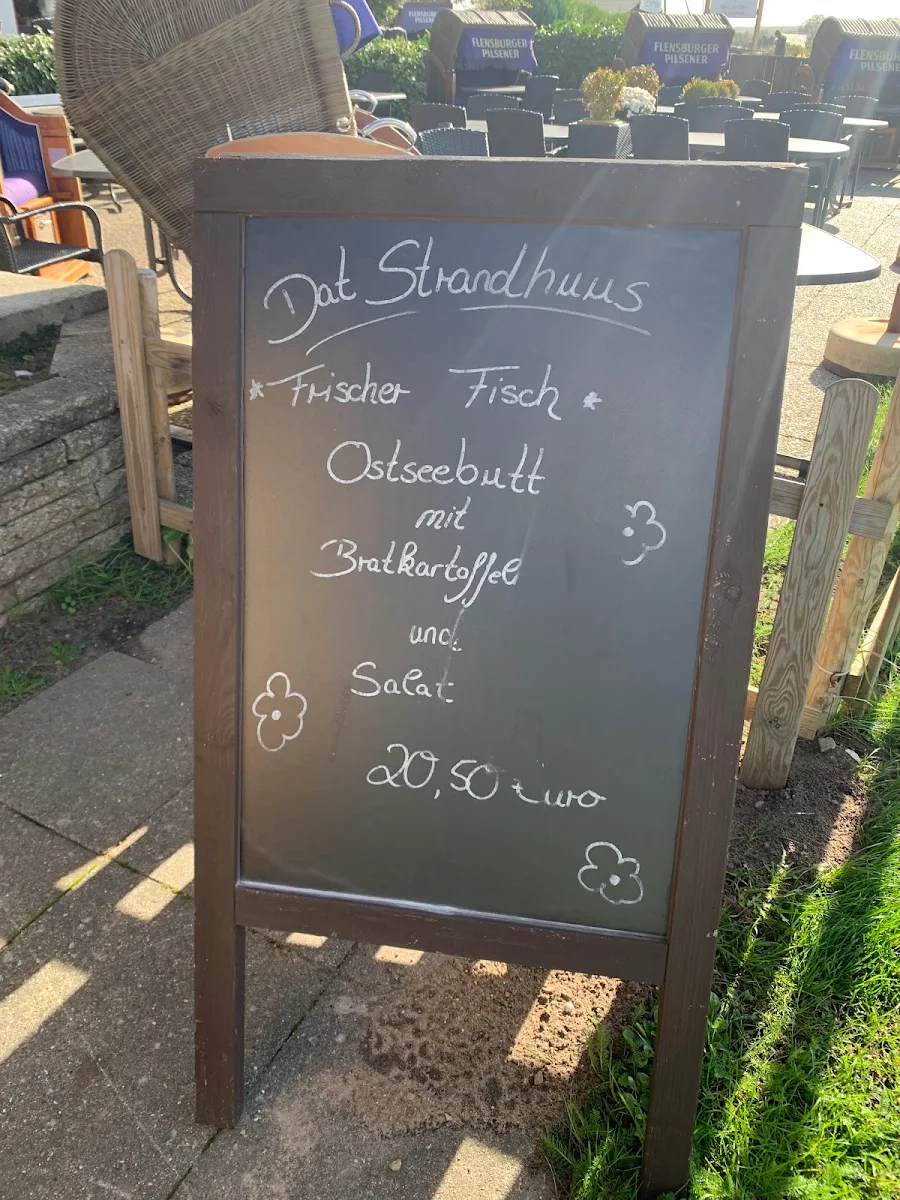 FLENSBURGER
PILSENER
FLENSBURGER
PILSENER
Dat Strandhuus
* Frischer Fisch *
Ostseebutt
mit
Bratkartoffel
und
Salat
20,50 Euro